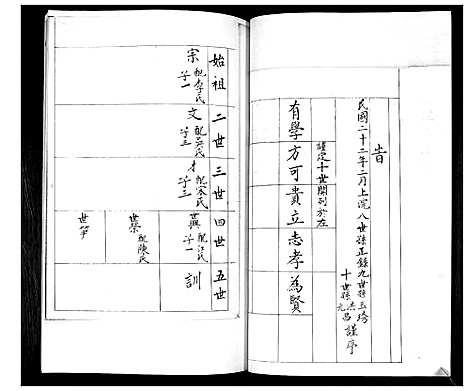 旹
民國二十二年二月上浣八世孫正錄九世孫玉培
十世孫杰昌元謹序
謹定十世開列於左
有學方可貴立志孝為賢
始祖 二世 三世 四世 五世
宗 配李氏 子一
文 配吳氏 子三
才 配宋氏 子三
世興 配江氏 子一
訓
世榮 配陳氏
世箏